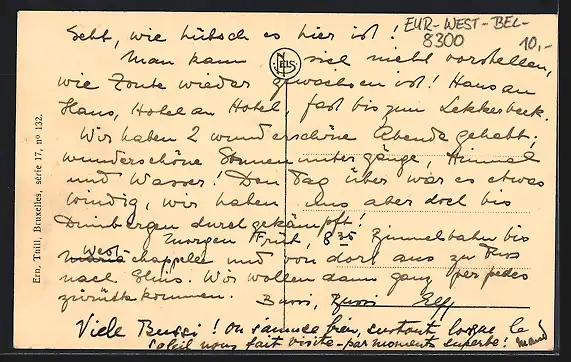 EUR-WEST-BEL-
8300 10,-
Seht, wie hübsch es hier ist!
Man kann sich nicht vorstellen,
NELS
wie Zoute wieder gewachsen ist! Haus an
Haus, Hotel an Hotel, fast bis zum Lekkerbeck.
Wir haben 2 wunderschöne Abende gehabt,
wunderschöne Sonnenuntergänge, Himmel
und Wasser! Den Tag über war es etwas
windig, wir haben uns aber doch bis
Duinbergen durchgekämpft!
Morgen Früh, 8 35 Zimmelbahn bis
West
chapelle und von dort aus zu Fuss
nach Sluis. Wir wollen dann ganz per pedes
zurückkommen. Bussi, Bussi Elly
Viele Bussi! On s'amuse bien, surtout lorsque le
soleil nous fait visite - par moments superbe! Maud
Ern, Thill, Bruxelles, série 17, nº 132.